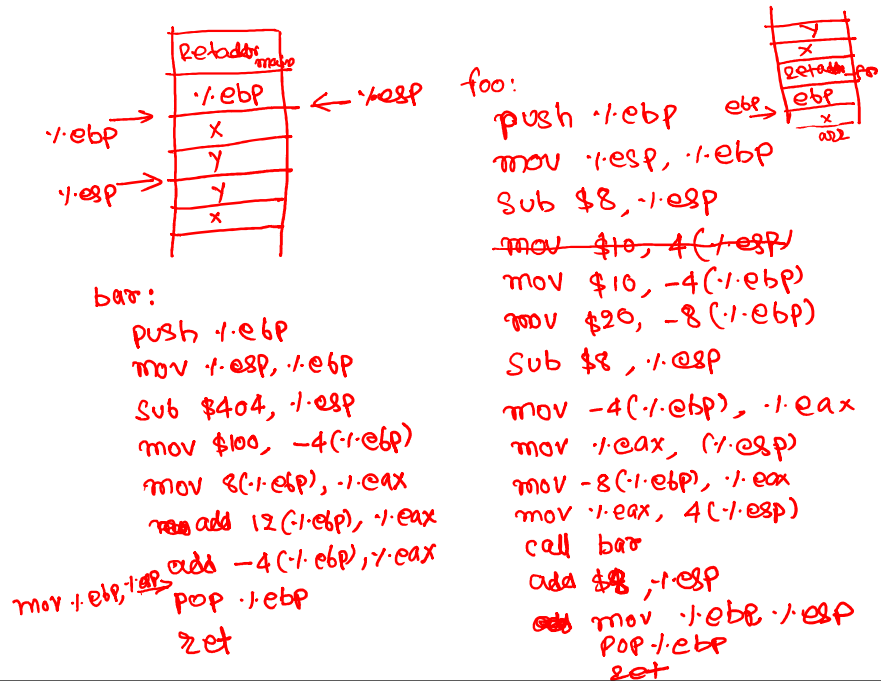 Retaddr main
%ebp
%ebp
%esp
x
y
%esp
y
x
bar:
push %ebp
mov %esp, %ebp
sub $404, %esp
mov $100, -4(%ebp)
mov 8(%ebp), %eax
add 12(%ebp), %eax
add -4(%ebp), %eax
mov %ebp, %esp
pop %ebp
ret
y
x
retaddr foo
ebp
ebp
x
arr
foo:
push %ebp
mov %esp, %ebp
sub $8, %esp
mov $10, 4(%esp)
mov $10, -4(%ebp)
mov $20, -8(%ebp)
sub $8, %esp
mov -4(%ebp), %eax
mov %eax, (%esp)
mov -8(%ebp), %eax
mov %eax, 4(%esp)
call bar
add $8, %esp
mov %ebp %esp
pop %ebp
ret